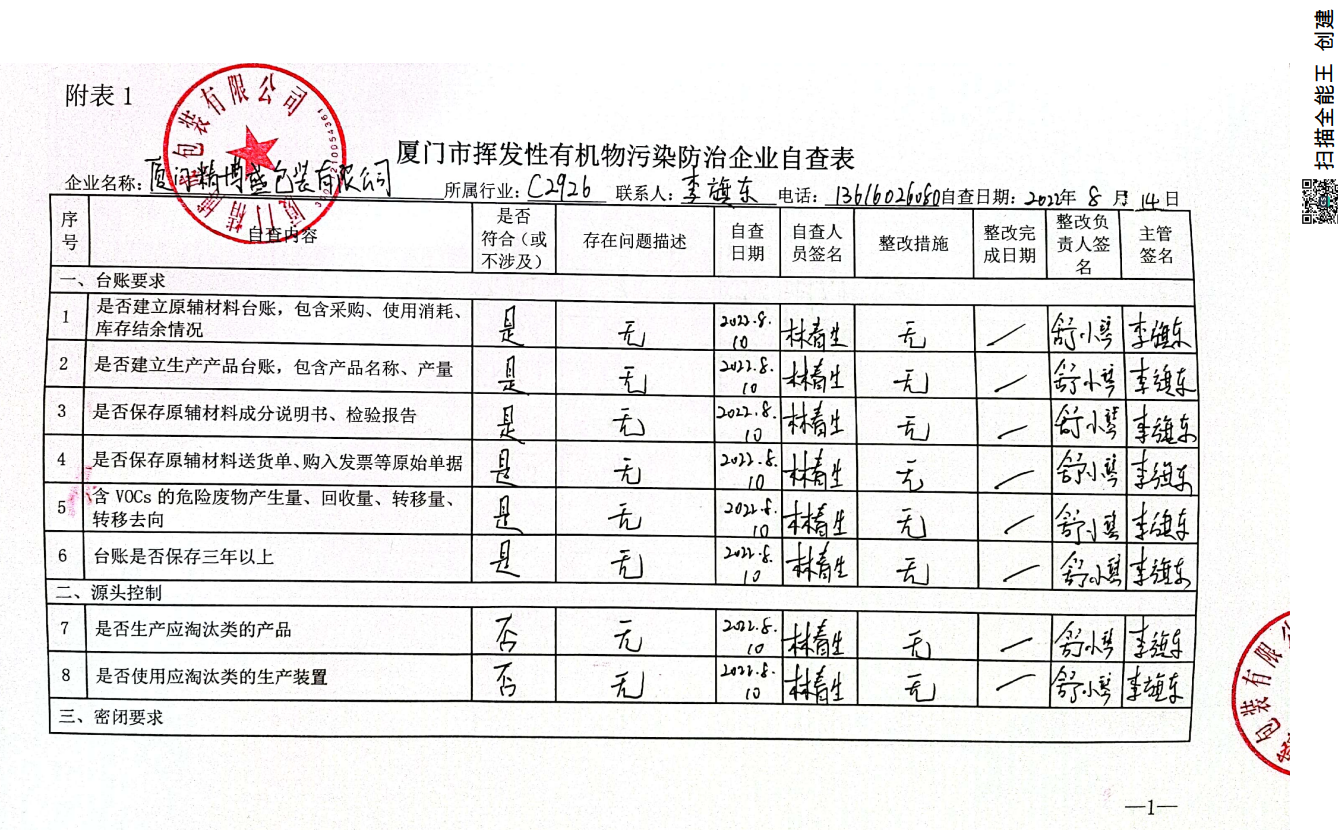 扫描全能王 创建
附表 1
包装有限公司
厦门市挥发性有机物污染防治企业自查表
企业名称：厦门精博盛包装有限公司 所属行业：C2926 联系人：李旗东 电话：13616026080 自查日期：2022年 8 月 14 日
序号 自查内容 是否符合（或不涉及） 存在问题描述 自查日期 自查人员签名 整改措施 整改完成日期 整改负责人签名 主管签名
一、台账要求
1 是否建立原辅材料台账，包含采购、使用消耗、库存结余情况 是 无 2022.8.10 林春生 无 / 舒小琴 李旗东
2 是否建立生产产品台账，包含产品名称、产量 是 无 2022.8.10 林春生 无 / 舒小琴 李旗东
3 是否保存原辅材料成分说明书、检验报告 是 无 2022.8.10 林春生 无 / 舒小琴 李旗东
4 是否保存原辅材料送货单、购入发票等原始单据 是 无 2022.8.10 林春生 无 / 舒小琴 李旗东
5 含 VOCs 的危险废物产生量、回收量、转移量、转移去向 是 无 2022.8.10 林春生 无 / 舒小琴 李旗东
6 台账是否保存三年以上 是 无 2022.8.10 林春生 无 / 舒小琴 李旗东
二、源头控制
7 是否生产应淘汰类的产品 否 无 2022.8.10 林春生 无 / 舒小琴 李旗东
8 是否使用应淘汰类的生产装置 否 无 2022.8.10 林春生 无 / 舒小琴 李旗东
三、密闭要求
包装有限公
—1—